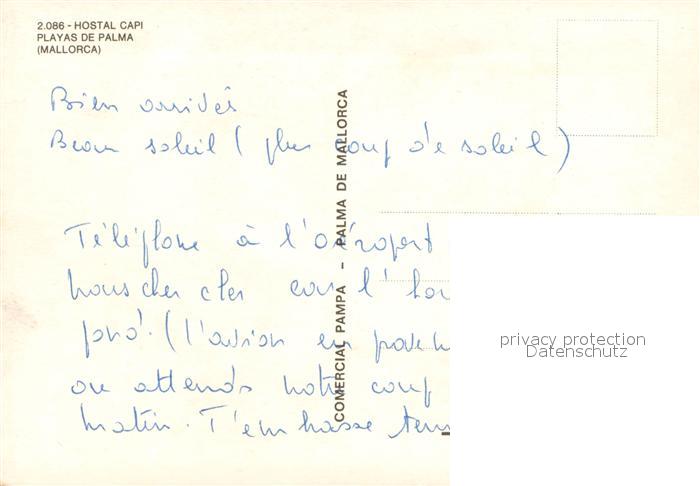 2.086 - HOSTAL CAPI
PLAYAS DE PALMA
(MALLORCA)
Bien arrivés
Beau soleil (plus coup de soleil)
COMERCIAL PAMPA - PALMA DE MALLORCA
Téléphone à l'aéroport
nous chercher car l'
(l'avion en
on attends notre coup
matin. T'embrasse
privacy protection
Datenschutz